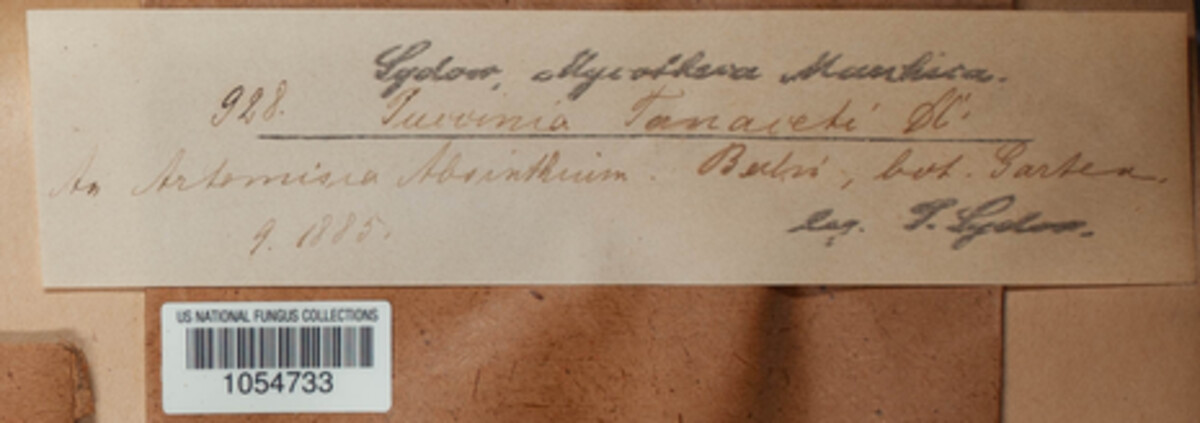 Sydow, Mycotheca Marchica.
928. Puccinia Tanaceti DC.
An Artemisia Absinthium. Berlin, bot. Garten.
9. 1885. leg. P. Sydow.
US NATIONAL FUNGUS COLLECTIONS
1054733